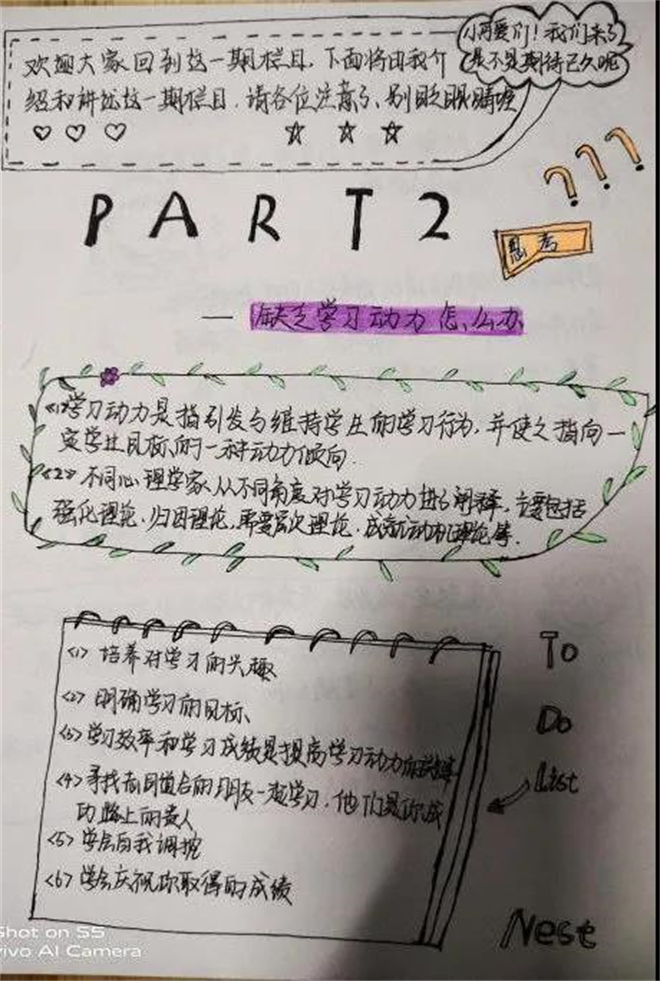 小可爱们！我们来了
是不是期待已久呢
欢迎大家回到这一期栏目，下面将由我介
绍和讲述这一期栏目，请各位注意了、别眨眼睛喔
???
PART2
思考
— 缺乏学习动力怎么办
<1>学习动力是指引发与维持学生的学习行为，并使之指向一
定学业目标的一种动力倾向.
<2>不同心理学家从不同角度对学习动力进行阐释，主要包括
强化理论、归因理论、需要层次理论、成就动机理论等.
<1> 培养对学习的兴趣
<2> 明确学习的目标、
<3>学习效率和学习成绩是提高学习动力的关键
<4>寻找有同道合的朋友一起学习，他们是你成
功路上的贵人
<5> 学会自我调控
<6> 学会庆祝你取得的成绩
To
Do
List
Nest
Shot on S5
vivo AI Camera